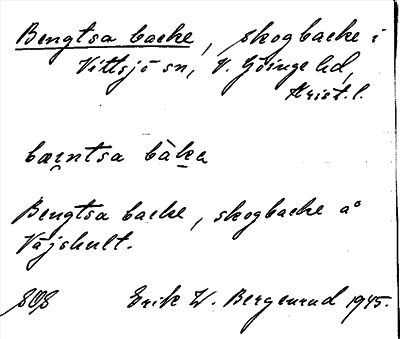 Bengtsa backe, skogbacke i
Vittsjö sn, V. Göinge hd,
Krist. l.
bæntsa bàka
Bengtsa backe, skogbacke å
Vajshult.
Erik W. Bergenrud 1945.